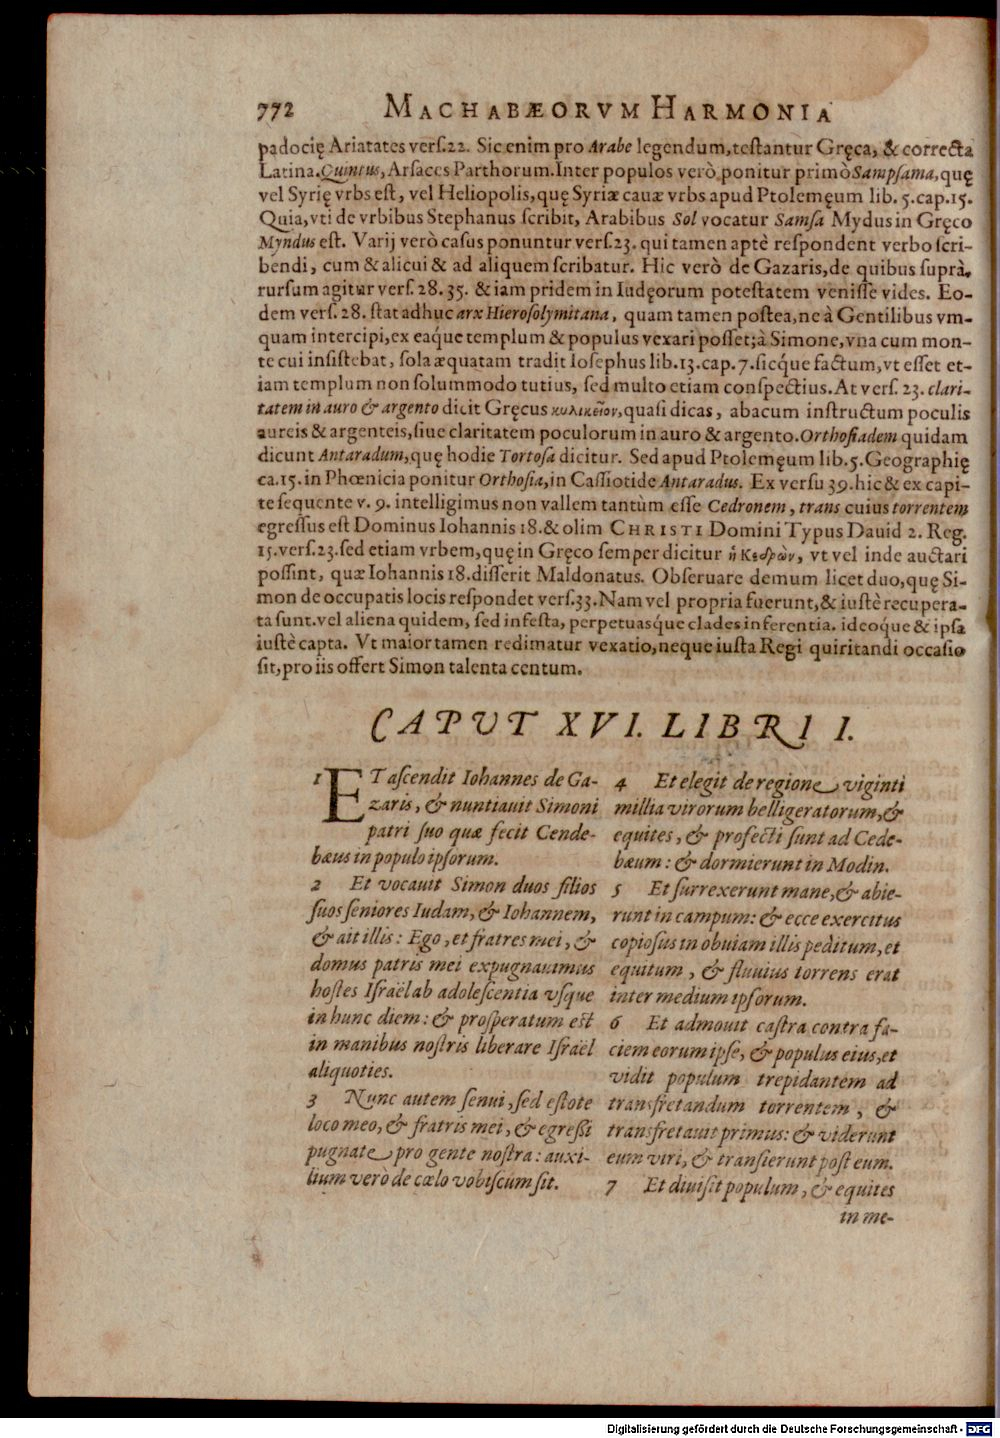 772 MACHABÆORVM HARMONIA
padocię Ariatates vers.22. Sic enim pro Arabe legendum, testantur Gręca, & correcta
Latina. Quintus, Arsaces Parthorum. Inter populos verò ponitur primò Sampsama, quę
vel Syrię vrbs est, vel Heliopolis, quę Syriæ cauæ vrbs apud Ptolemęum lib. 5. cap. 15.
Quia, vti de vrbibus Stephanus scribit, Arabibus Sol vocatur Samsa Mydus in Gręco
Myndus est. Varij verò casus ponuntur vers.23. qui tamen aptè respondent verbo scri-
bendi, cum & alicui & ad aliquem scribatur. Hic verò de Gazaris, de quibus suprà,
rursum agitur vers. 28. 35. & iam pridem in Iudęorum potestatem venisse vides. Eo-
dem vers. 28. stat adhuc arx Hierosolymitana, quam tamen postea, ne à Gentilibus vm-
quam intercipi, ex eaq́ue templum & populus vexari posset; à Simone, vna cum mon-
te cui insistebat, sola æquatam tradit Iosephus lib. 13. cap. 7. sicq́ue factum, vt esset et-
iam templum non solummodo tutius, sed multo etiam conspectius. At vers. 23. clari-
tatem in auro & argento dicit Gręcus κυλικεῖον, quasi dicas, abacum instructum poculis
aureis & argenteis, siue claritatem poculorum in auro & argento. Orthosiadem quidam
dicunt Antaradum, quę hodie Tortosa dicitur. Sed apud Ptolemęum lib. 5. Geographię
ca. 15. in Phœnicia ponitur Orthosia, in Cassiotide Antaradus. Ex versu 39. hic & ex capi-
te sequente v. 9. intelligimus non vallem tantùm esse Cedronem, trans cuius torrentem
egressus est Dominus Iohannis 18. & olim CHRISTI Domini Typus Dauid 2. Reg.
15. vers. 23. sed etiam vrbem, quę in Gręco semper dicitur ἡ Κεδρὼν, vt vel inde auctari
possint, quæ Iohannis 18. disserit Maldonatus. Obseruare demum licet duo, quę Si-
mon de occupatis locis respondet vers. 33. Nam vel propria fuerunt, & iustè recupera-
ta sunt. vel aliena quidem, sed infesta, perpetuasque clades inferentia. ideoque & ipsa
iustè capta. Vt maior tamen redimatur vexatio, neque iusta Regi quiritandi occasio
sit, pro iis offert Simon talenta centum.
CAPUT XVI. LIBRI I.
1 ET ascendit Iohannes de Ga-
zaris, & nuntiauit Simoni
patri suo quæ fecit Cende-
bæus in populo ipsorum.
2 Et vocauit Simon duos filios
suos seniores Iudam, & Iohannem,
& ait illis: Ego, et fratres mei, &
domus patris mei expugnauimus
hostes Israël ab adolescentia vsque
in hunc diem: & prosperatum est
in manibus nostris liberare Israël
aliquoties.
3 Nunc autem senui, sed estote
loco meo, & fratris mei, & egressi
pugnate pro gente nostra: auxi-
lium verò de cælo vobiscum sit.
4 Et elegit de regione viginti
millia virorum belligeratorum, &
equites, & profecti sunt ad Cede-
bæum: & dormierunt in Modin.
5 Et surrexerunt mane, & abie-
runt in campum: & ecce exercitus
copiosus in obuiam illis peditum, et
equitum, & fluuius torrens erat
inter medium ipsorum.
6 Et admouit castra contra fa-
ciem eorum ipse, & populus eius, et
vidit populum trepidantem ad
transfretandum torrentem, &
transfretauit primus: & viderunt
eum viri, & transierunt post eum.
7 Et diuisit populum, & equites
in me-
Digitalisierung gefördert durch die Deutsche Forschungsgemeinschaft - DFG